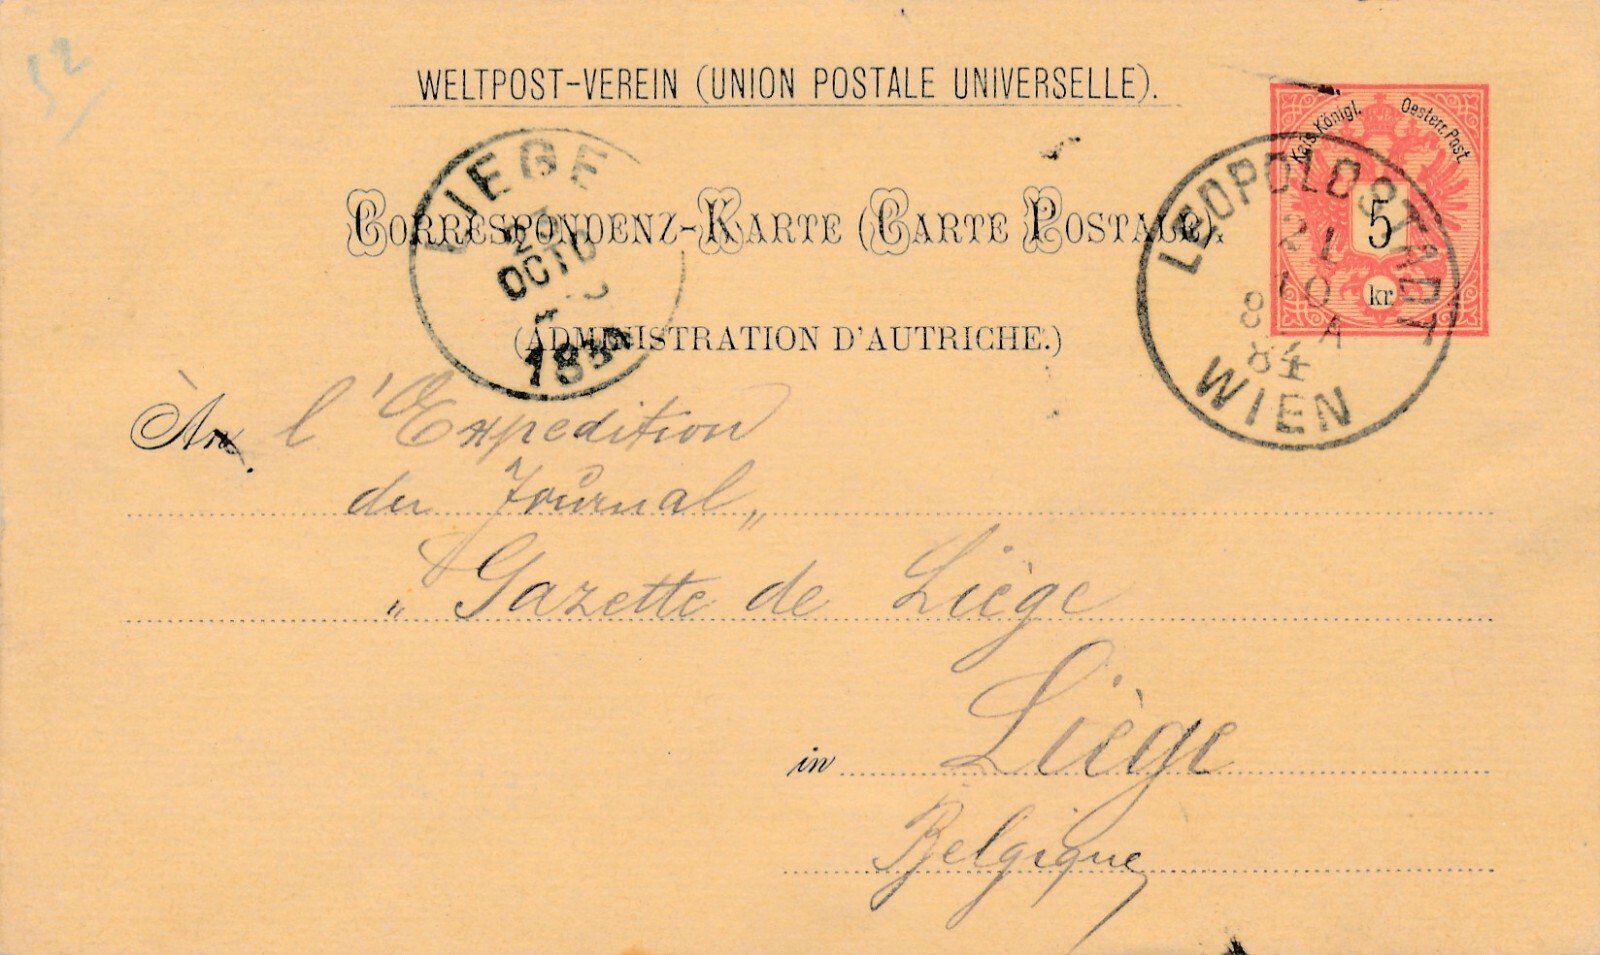 52
WELTPOST-VEREIN (UNION POSTALE UNIVERSELLE).
Kais. Königl. Oesterr. Post.
5
kr.
LEOPOLDSTADT
21
10
8 A
84
WIEN
LIEGE
OCTO
18
CORRESPONDENZ-KARTE (CARTE POSTALE).
(ADMINISTRATION D'AUTRICHE.)
An l'Expedition
du Journal „
„ Gazette de Liège
in Liège
Belgique